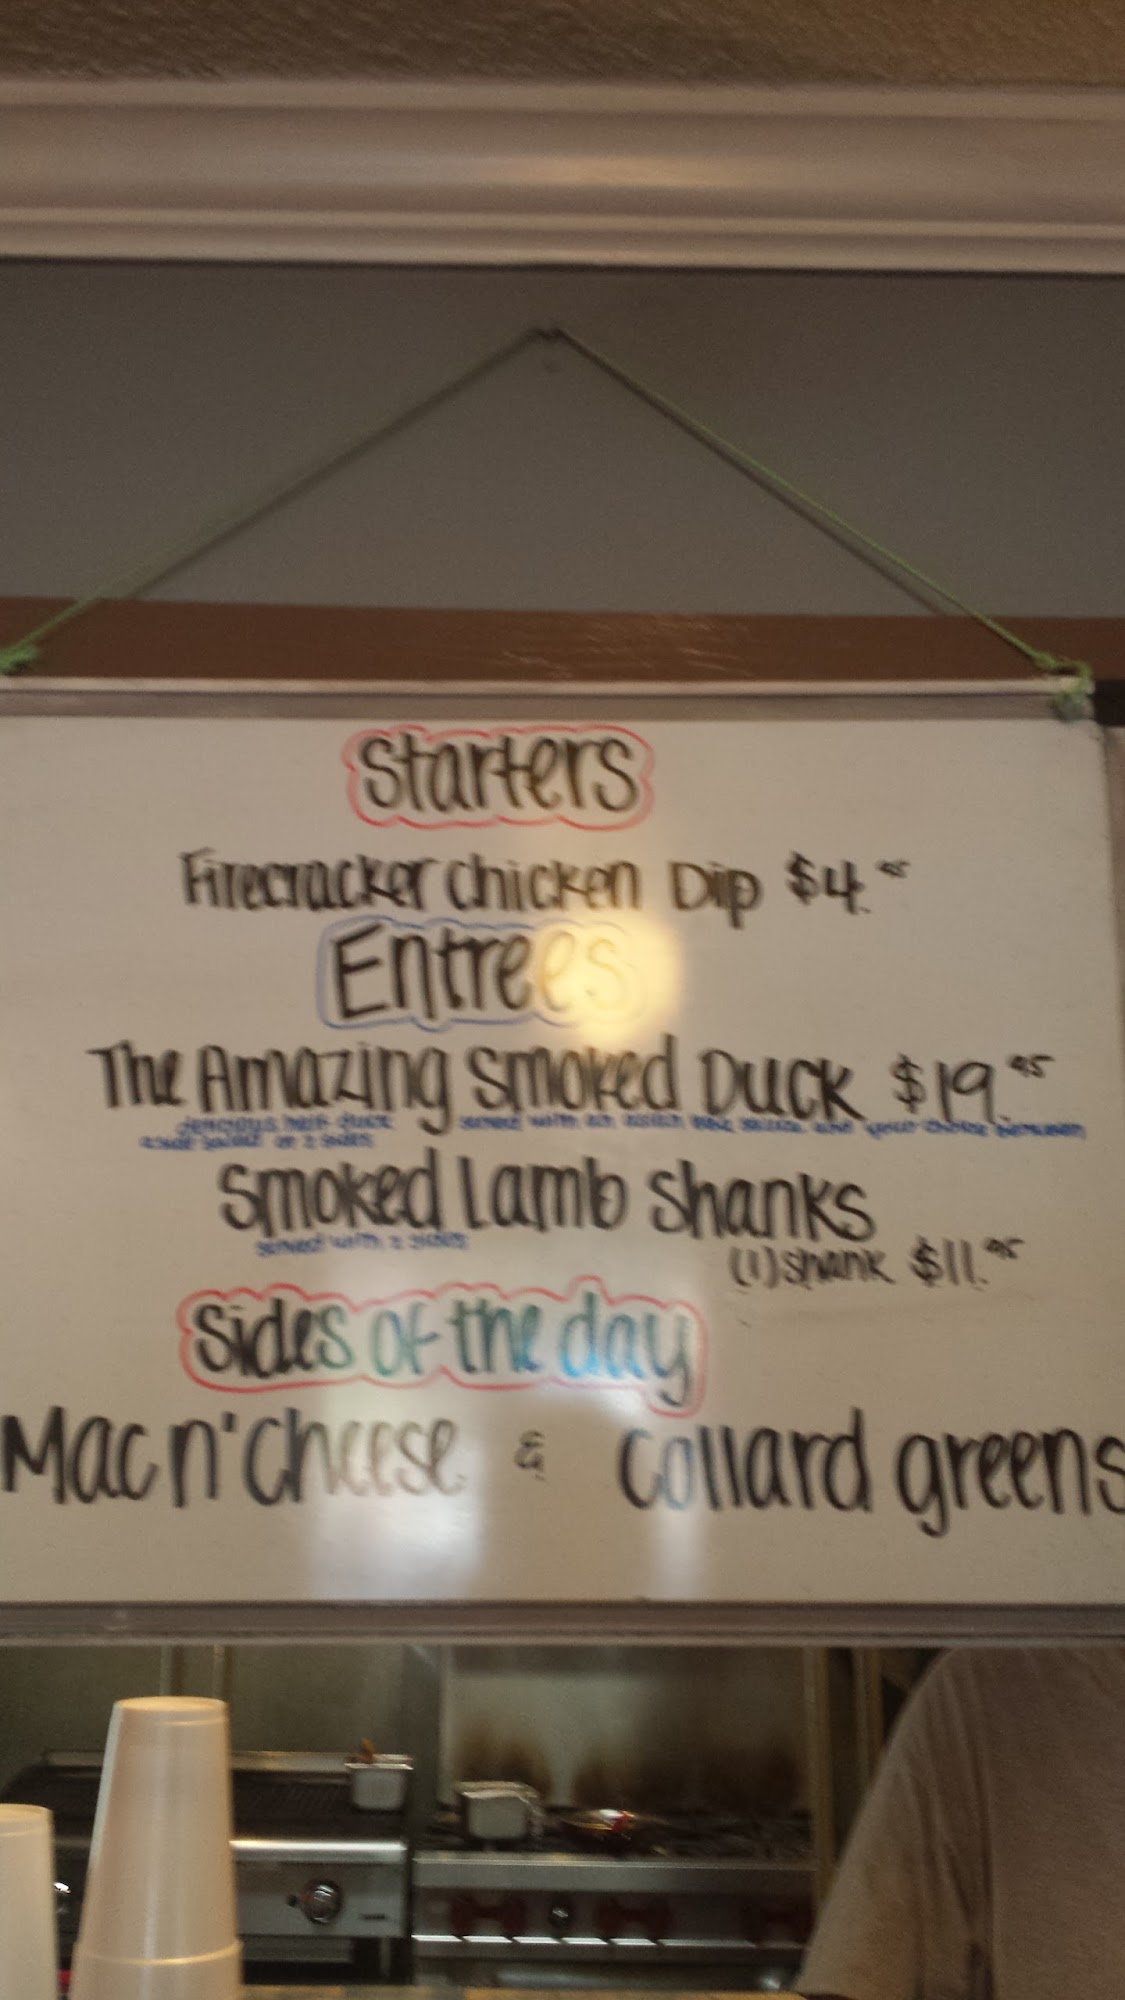 Starters
Firecracker Chicken Dip $4.95
Entrees
The Amazing Smoked Duck $19.95
delicious half duck served with an asian bbq sauce and your choice between
a side salad or 2 sides
Smoked Lamb Shanks
served with 2 sides
(1) shank $11.95
Sides of the day
Mac n' Cheese & Collard greens